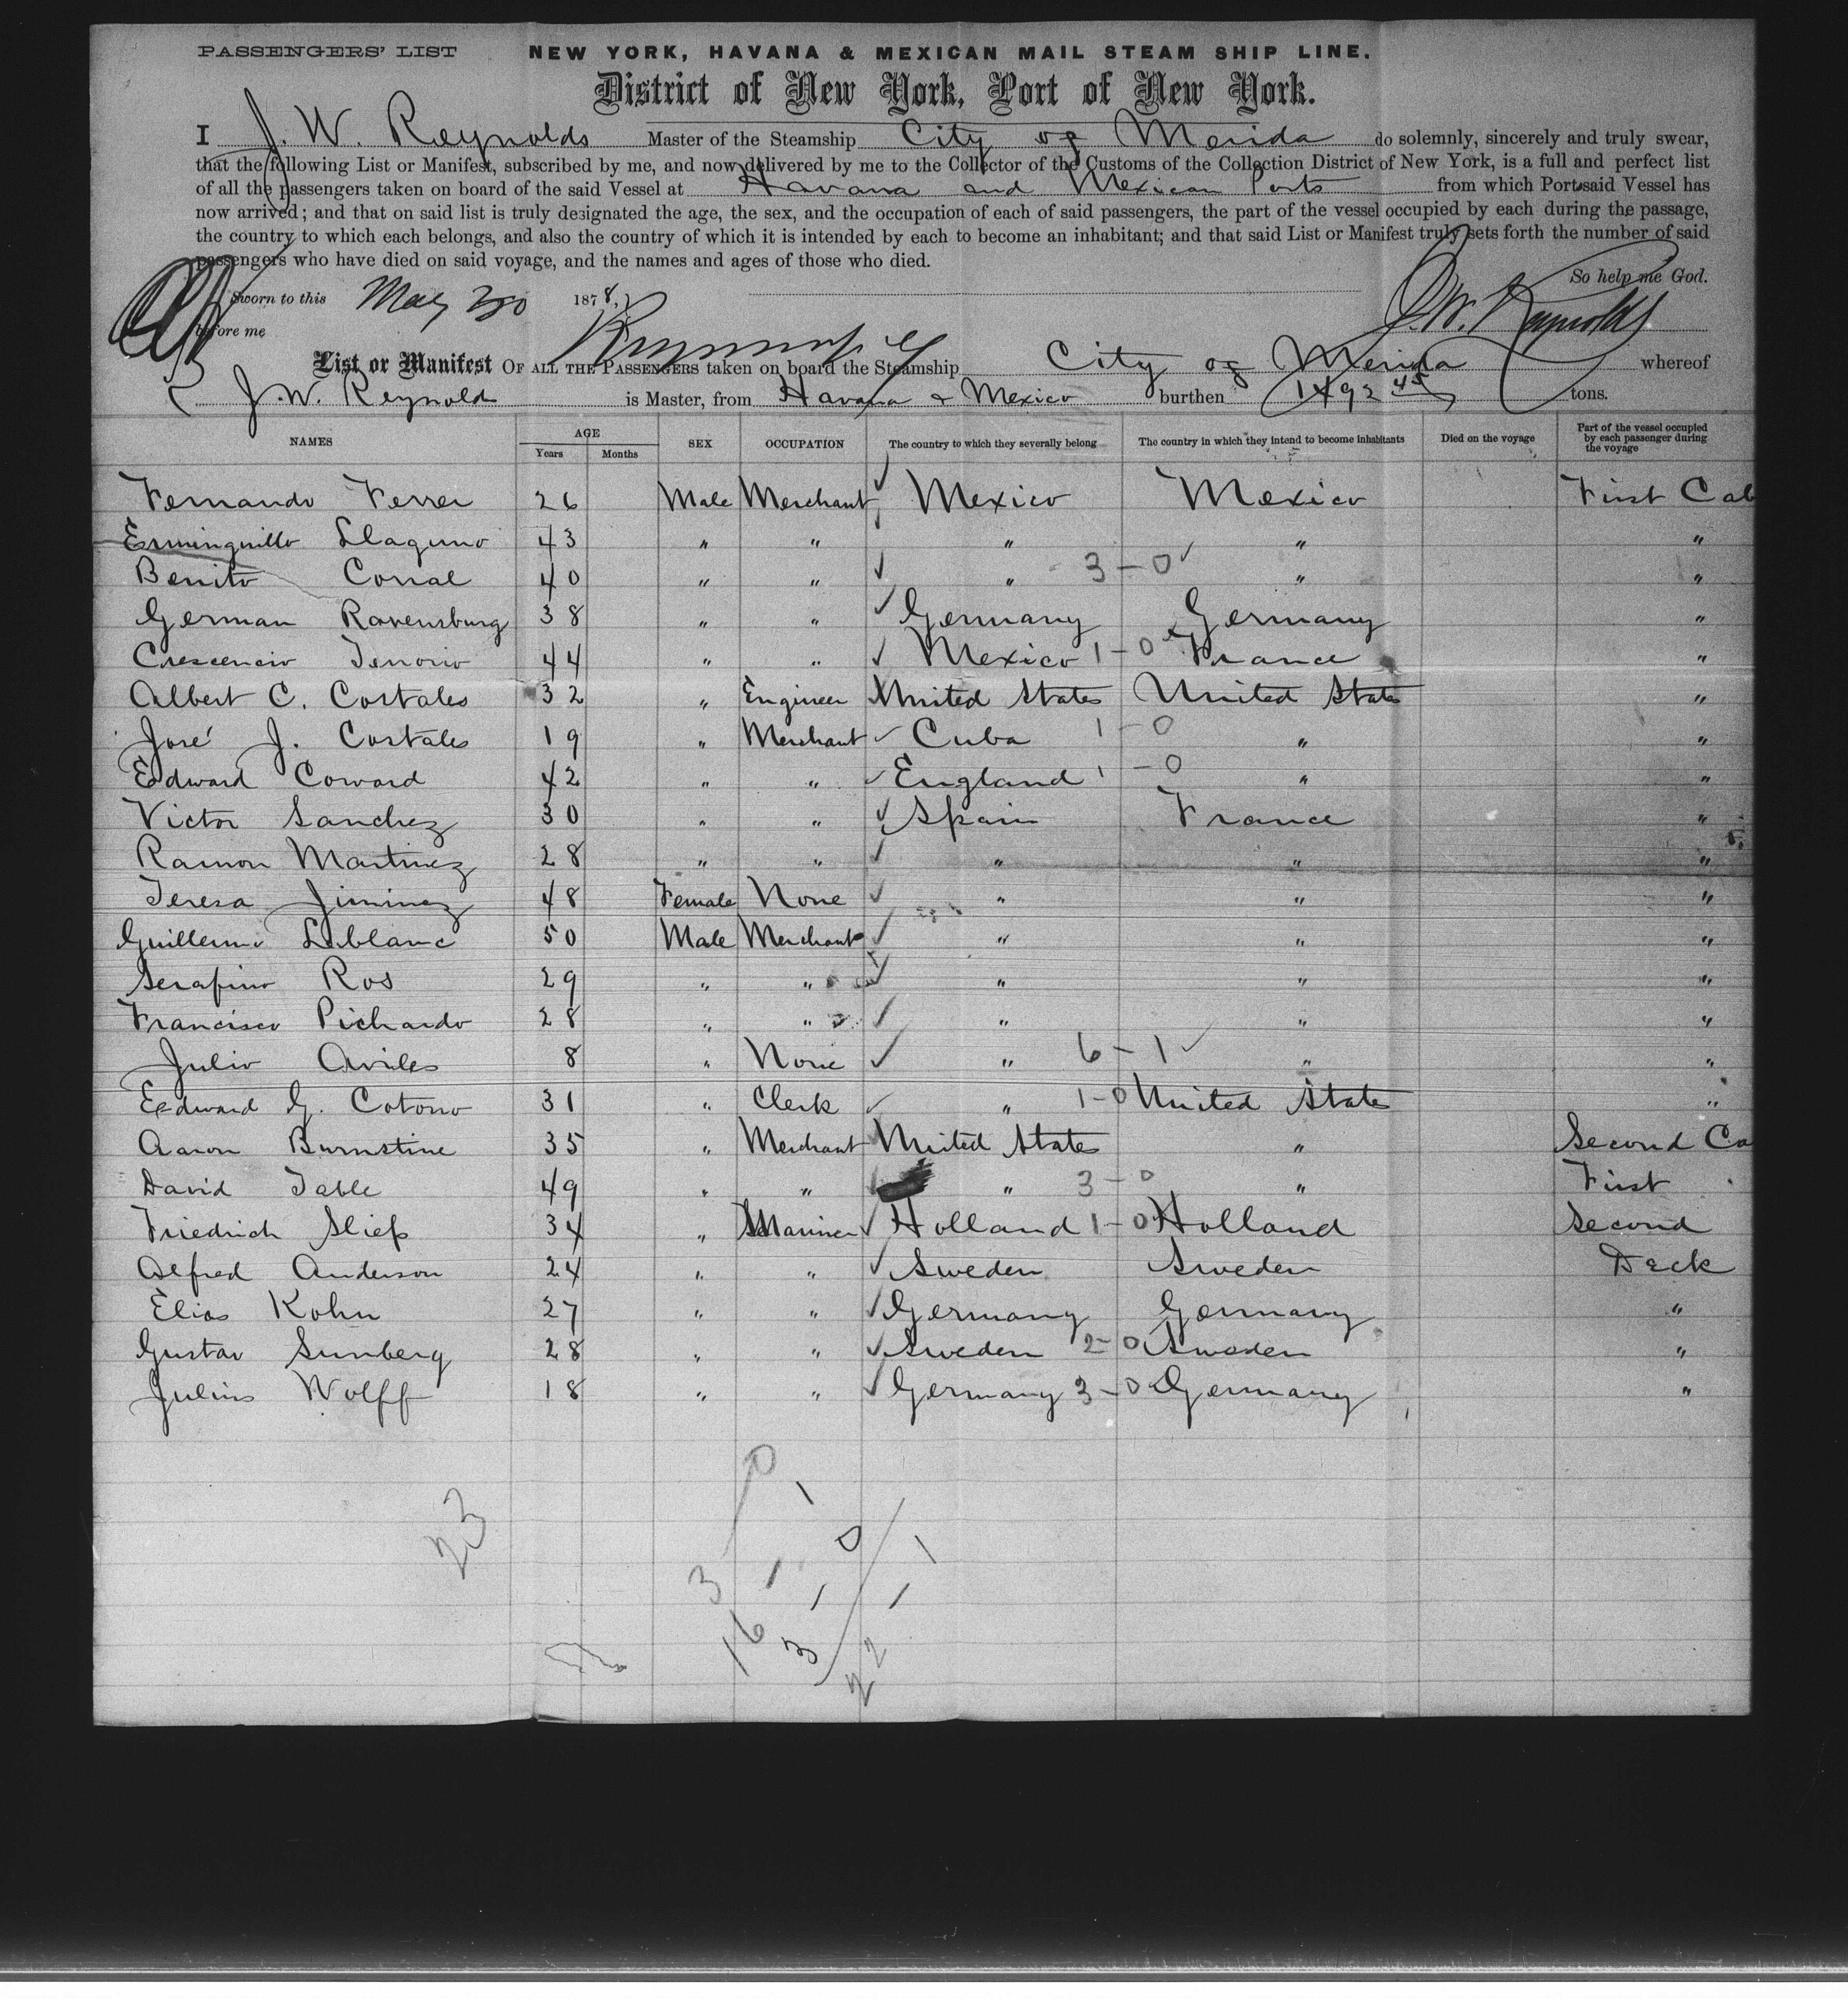 PASSENGERS' LIST NEW YORK, HAVANA & MEXICAN MAIL STEAM SHIP LINE.
District of New York, Port of New York.
I J. W. Reynolds Master of the Steamship City of Merida do solemnly, sincerely and truly swear,
that the following List or Manifest, subscribed by me, and now delivered by me to the Collector of the Customs of the Collection District of New York, is a full and perfect list
of all the passengers taken on board of the said Vessel at Havana and Mexican Ports from which Port said Vessel has
now arrived; and that on said list is truly designated the age, the sex, and the occupation of each of said passengers, the part of the vessel occupied by each during the passage,
the country to which each belongs, and also the country of which it is intended by each to become an inhabitant; and that said List or Manifest truly sets forth the number of said
passengers who have died on said voyage, and the names and ages of those who died.
So help me God.
Sworn to this May 1878,
before me J. W. Reynolds
List or Manifest OF ALL THE PASSENGERS taken on board the Steamship City of Merida whereof
J. W. Reynolds is Master, from Havana & Mexico burthen 1492 45 tons.
NAMES AGE Years Months SEX OCCUPATION The country to which they severally belong The country in which they intend to become inhabitants Died on the voyage Part of the vessel occupied by each passenger during the voyage
Fernando Ferrer 26 Male Merchant Mexico Mexico First Cab
Erminguillo Llaguno 43 " " " " "
Benito Corral 40 " " " 3-0 " "
German Ravensburg 38 " " Germany Germany "
Crescencio Tenorio 44 " " Mexico 1-0 France "
Albert C. Costales 32 " Engineer United States United States "
José J. Costales 19 " Merchant Cuba 1-0 " "
Edward Coward 42 " " England 1-0 " "
Victor Sanchez 30 " " Spain France "
Ramon Martinez 28 " " " " "
Teresa Jiminez 48 Female None " " "
Guillermo Leblanc 50 Male Merchant " " "
Serafino Ros 29 " " " " "
Francisco Pichardo 28 " " " " "
Julio Aviles 8 " None " 6-1 " "
Edward G. Cotono 31 " Clerk " 1-0 United States "
Aaron Burnstine 35 " Merchant United States " Second Ca
David Table 49 " " " 3-0 " First
Friedrich Sliefs 34 " Mariner Holland 1-0 Holland Second
Alfred Anderson 24 " " Sweden Sweden Deck
Elias Kohn 27 " " Germany Germany "
Gustav Sunberg 28 " " Sweden 2-0 Sweden "
Julius Wolff 18 " " Germany 3-0 Germany "
23
3 0
16 1 1
3 1 0
22 1 1